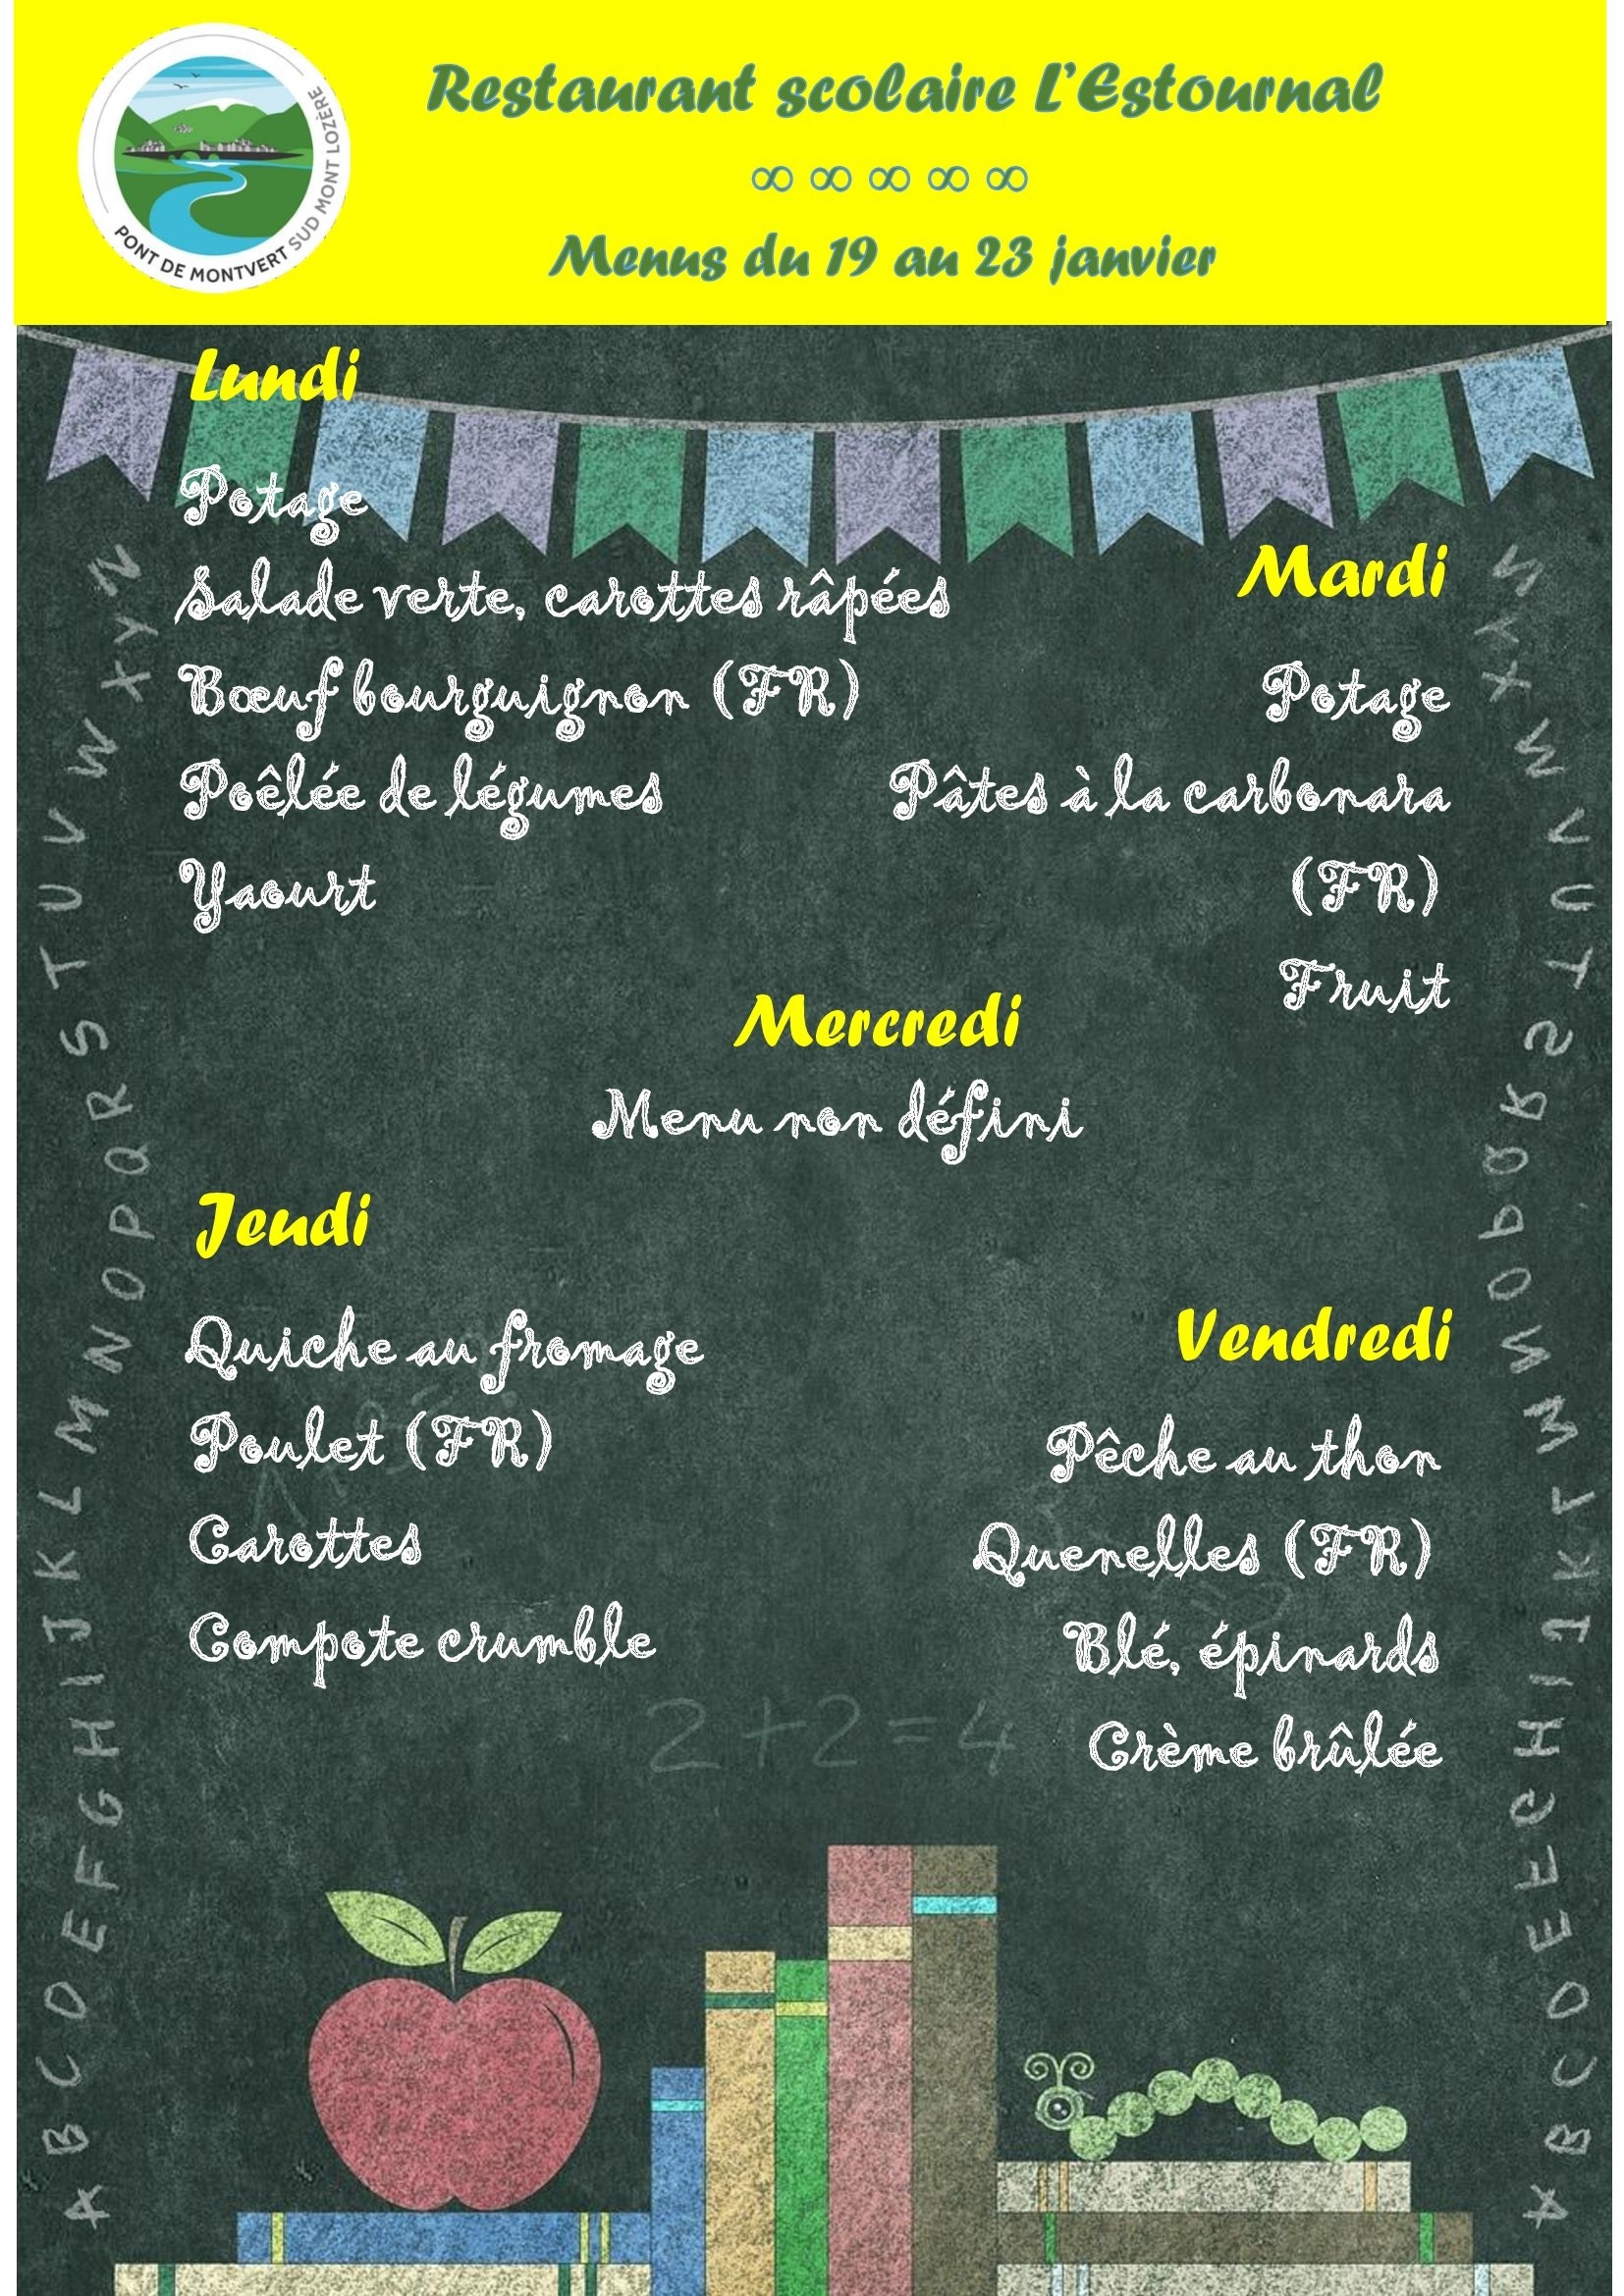 PONT DE MONTVERT SUD MONT LOZÈRE
Restaurant scolaire L'Estournal
∞ ∞ ∞ ∞ ∞
Menus du 19 au 23 janvier
Lundi
Potage
Salade verte, carottes râpées
Bœuf bourguignon (FR)
Poêlée de légumes
Yaourt
Mardi
Potage
Pâtes à la carbonara
(FR)
Fruit
Mercredi
Menu non défini
Jeudi
Quiche au fromage
Poulet (FR)
Carottes
Compote crumble
Vendredi
Pêche au thon
Quenelles (FR)
Blé, épinards
Crème brûlée
2+2=4